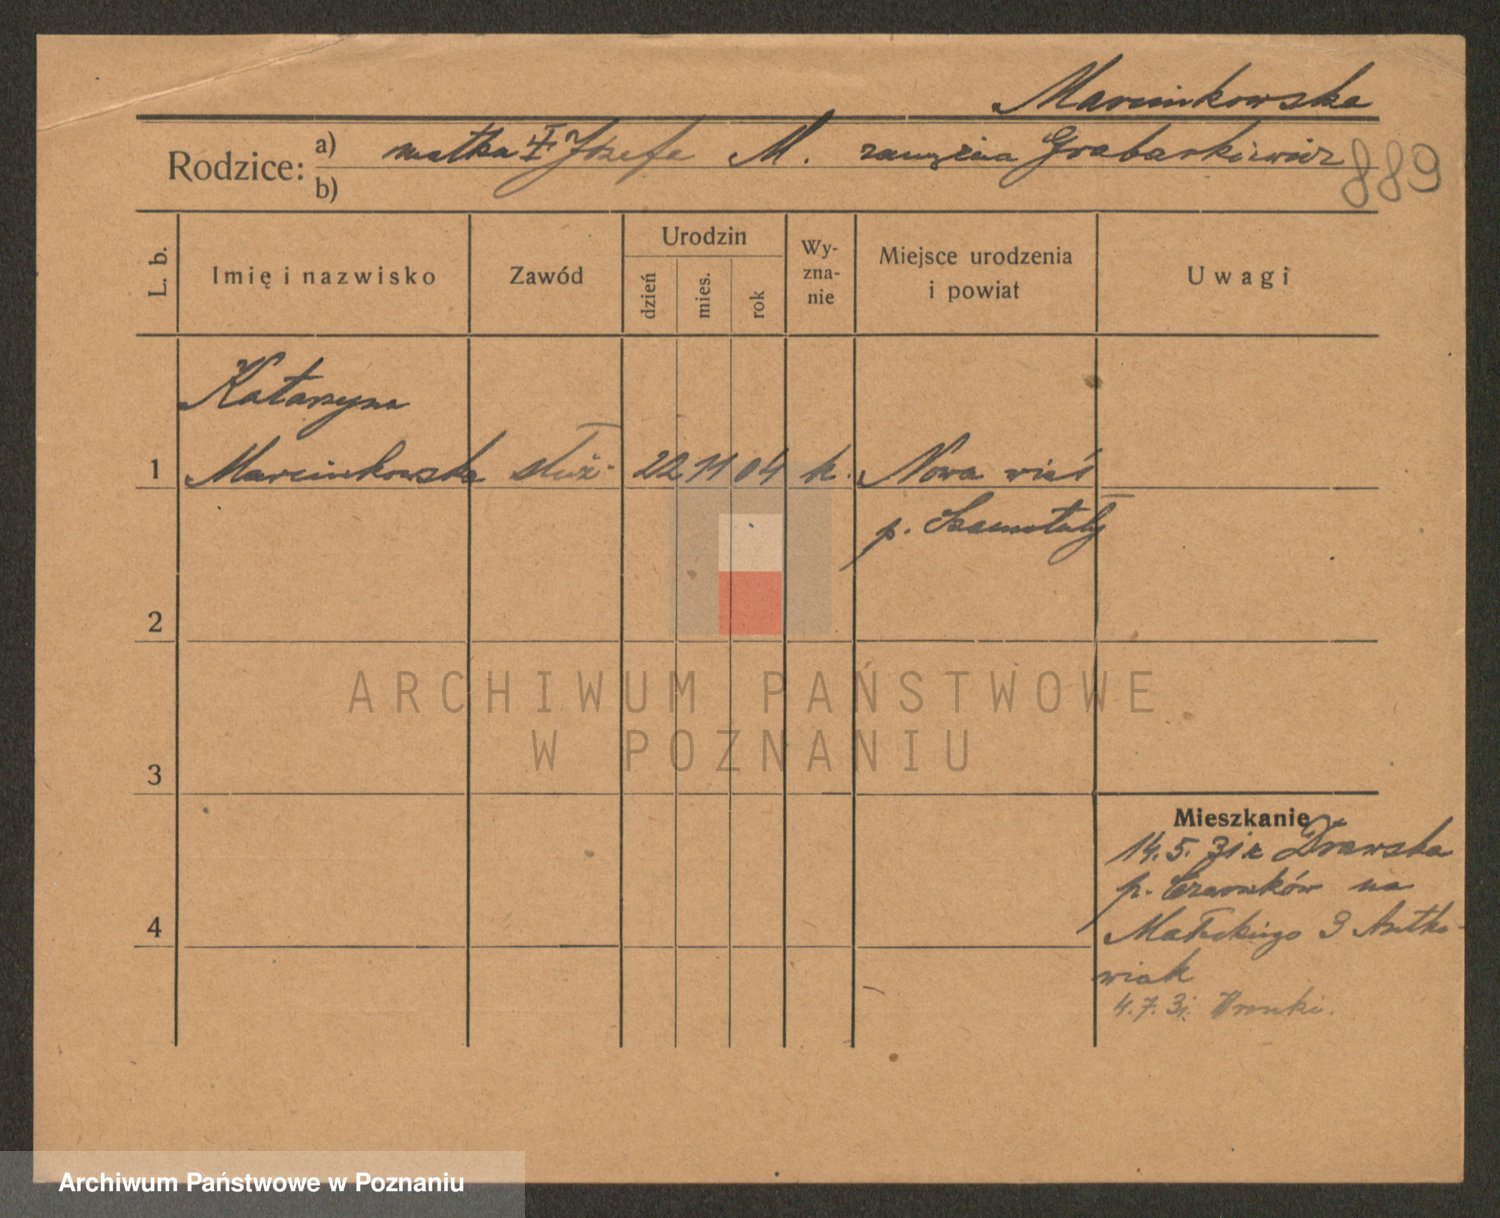 Marcinkowska
Rodzice: a) matka Józefa M. zamężna Grabarkiewicz
b)
889
L. b.
Imię i nazwisko
Zawód
Urodzin
dzień
mies.
rok
Wy-
zna-
nie
Miejsce urodzenia
i powiat
Uwagi
Katarzyna
1 Marcinkowska służ. 22 11 04 k. Nowa wieś
p. Szamotuły
2
ARCHIWUM PAŃSTWOWE
W POZNANIU
3
Mieszkanie
14.5.31 z Drawska
p. Czarnków na
4
Małeckiego 3 Antko-
wiak
4.7.31. Wronki.
Archiwum Państwowe w Poznaniu